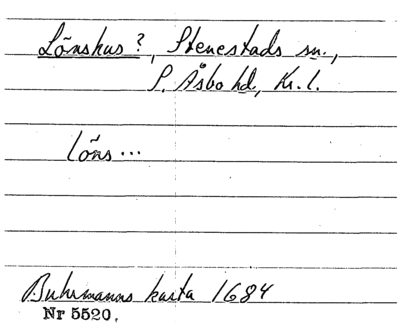 Lönshus?, Stenestads sn.,
S. Åsbo hd, Kr. l.
löns...
Buhrmanns karta 1684
Nr 5520.